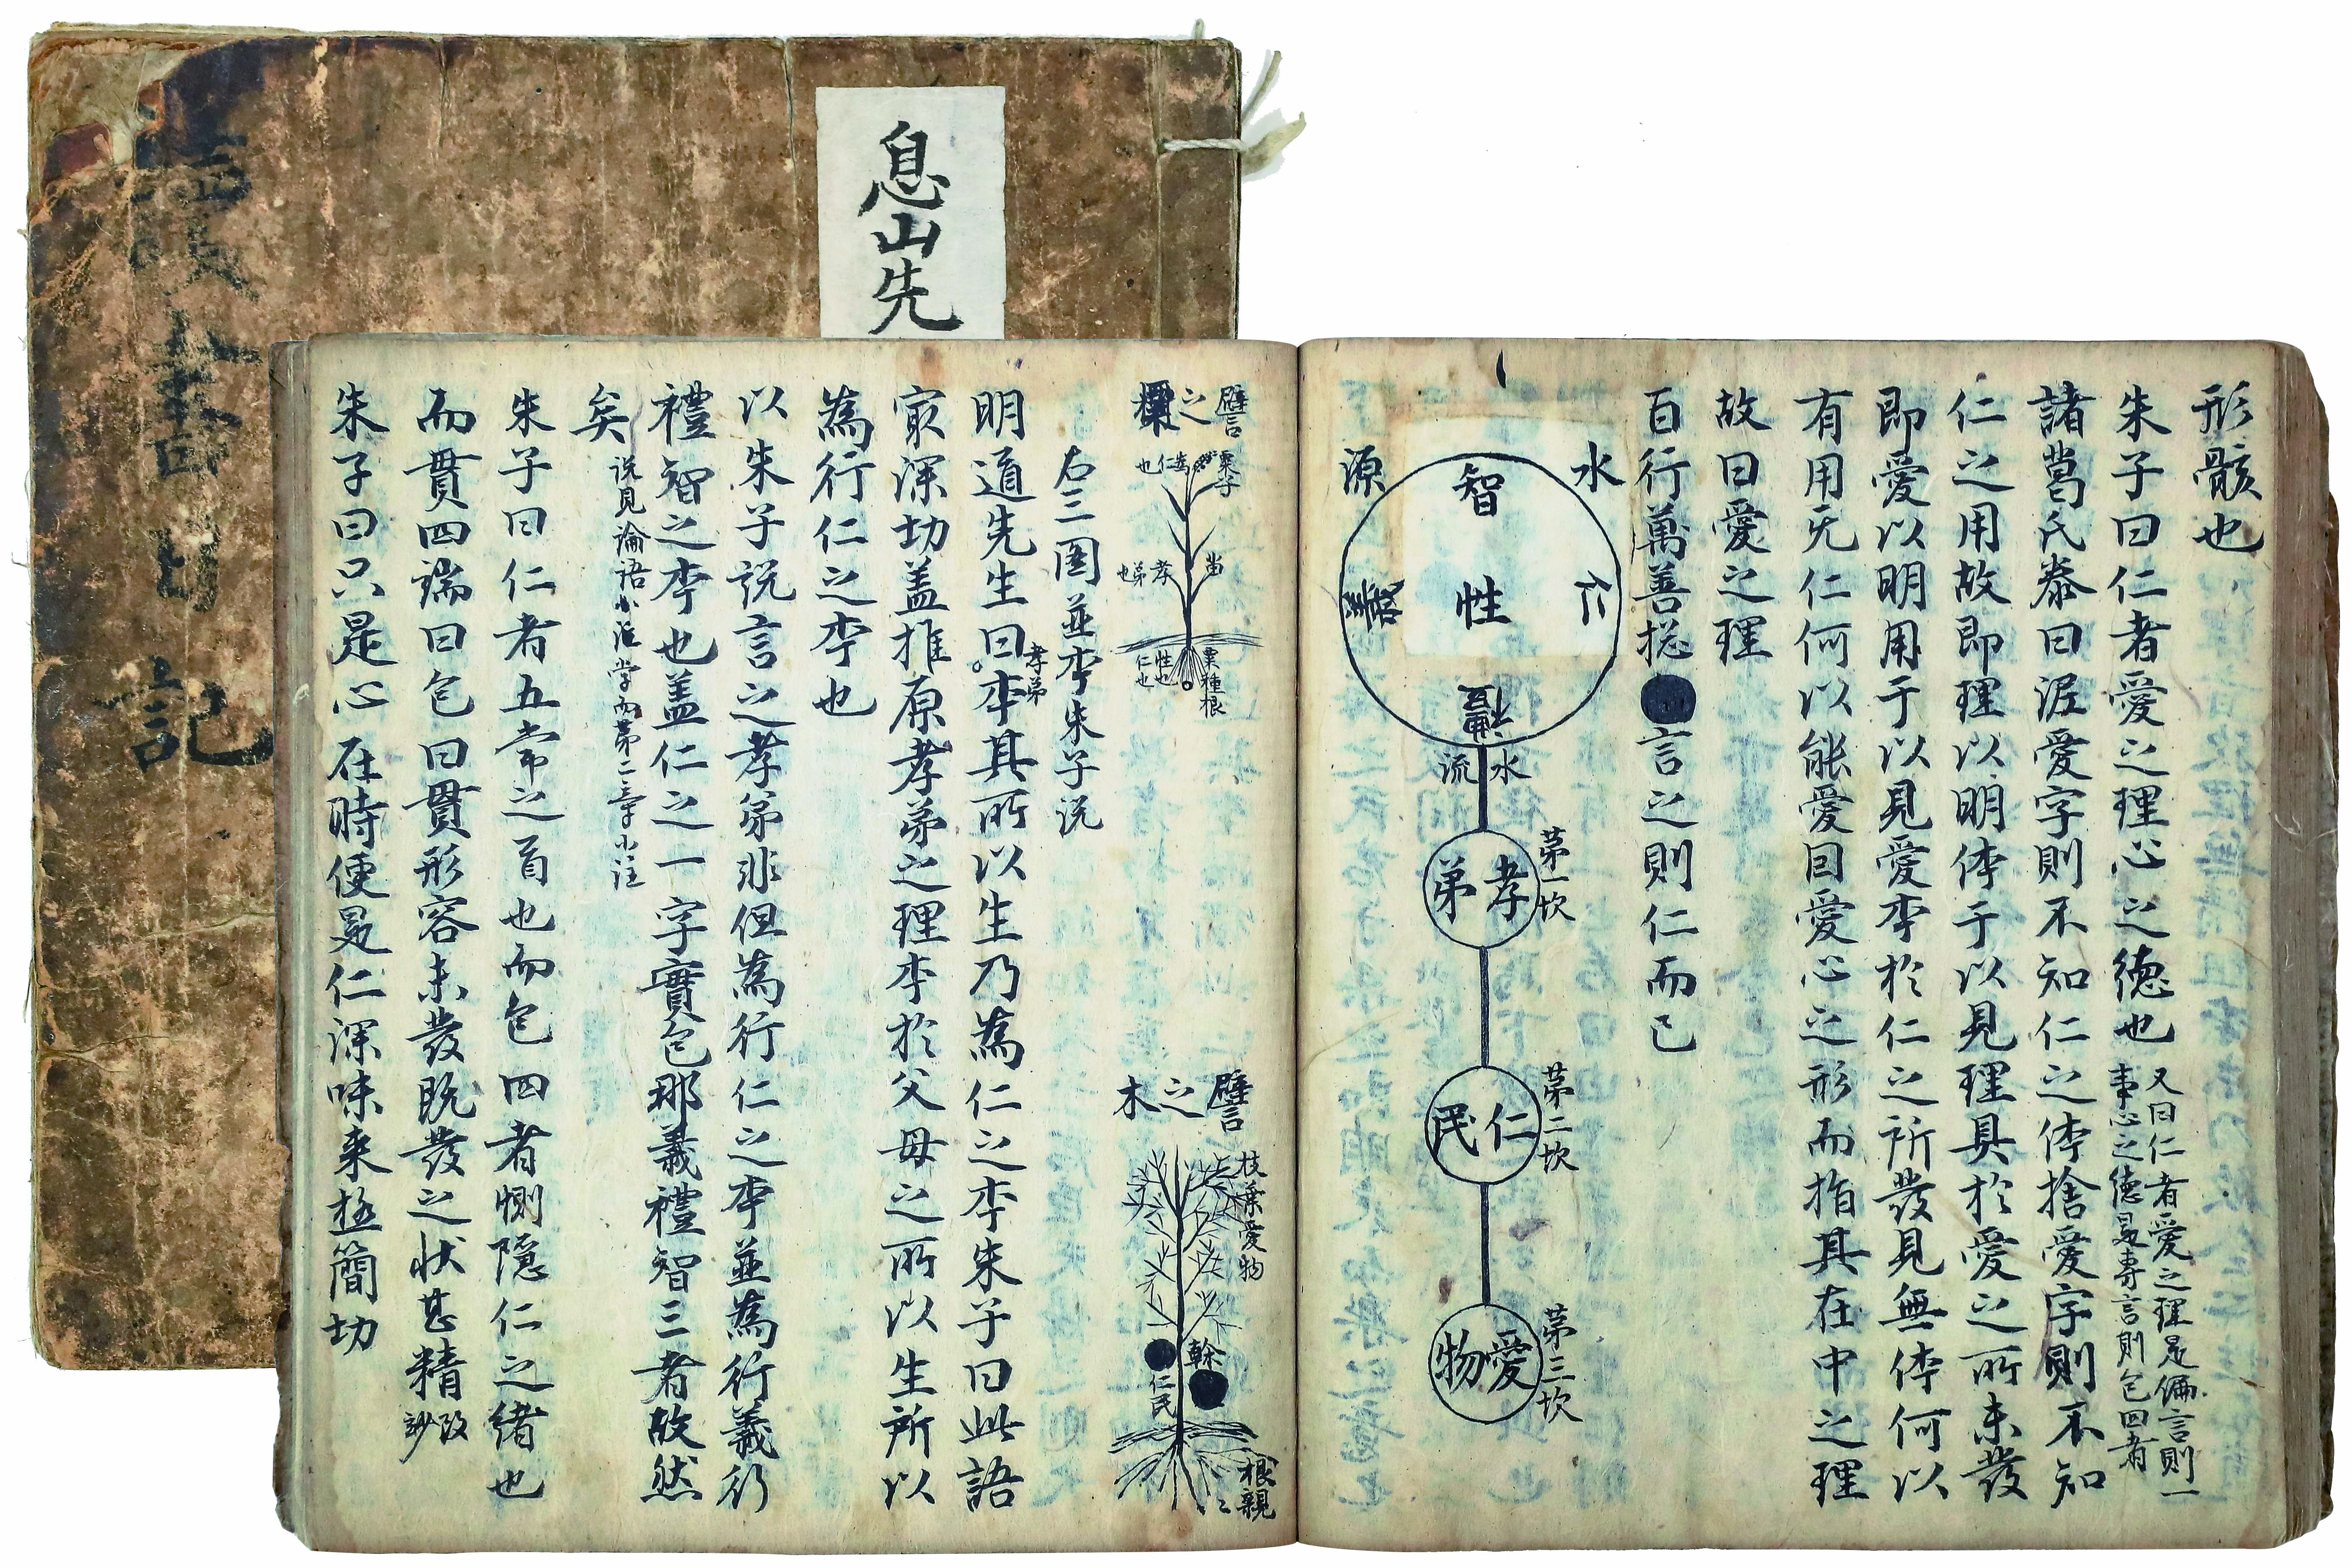 息山先
書日記
形骸也
朱子曰仁者愛之理心之德也
又曰仁者愛之理是偏言則一
事心之德是專言則包四者
諸葛氏泰曰泥愛字則不知仁之体捨愛字則不知
仁之用故即理以明体于以見理具於愛之所未發
即愛以明用于以見愛李於仁之所發見無体何以
有用无仁何以能愛因愛心之形而指其在中之理
故曰愛之理
百行萬善捴
言之則仁而已
水
源
智
性
仁
義
禮
水
流
第一坎
孝弟
第二坎
仁民
第三坎
愛物
譬之粟
粟子
為仁也
苗
孝弟也
粟種根
性也
仁也
譬之木
枝葉愛物
幹
仁民
根親親
右三圖並李朱子說
明道先生曰李其所以生乃為仁之李朱子曰此語
孝弟
㝡深切盖推原孝弟之理李於父母之所以生所以
為行仁之李也
以朱子說言之孝弟非但為行仁之李並為行義行
禮智之李也盖仁之一字實包那義禮智三者故然
矣
說見論語小注學而第二章小注
朱子曰仁者五常之首也而包四者惻隱仁之緒也
而貫四端曰包曰貫形容未發既發之状甚精
朱子曰只是心在時便是仁深味来極簡切